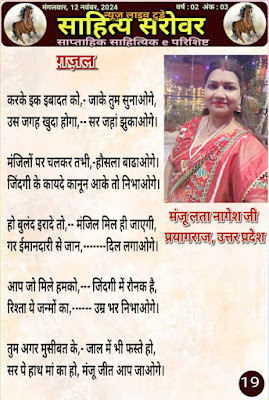 मंगलवार, 12 नवंबर, 2024
न्यूज लाइव टुडे
वर्ष : 02 अंक : 03
साहित्य सरोवर
साप्ताहिक साहित्यिक e परिशिष्ट
ग़ज़ल
करके इक इबादत को,- जाके तुम सुनाओगे,
उस जगह खुदा होगा,-- सर जहां झुकाओगे।
मंजिलों पर चलकर तभी,-हौसला बाढाओगे।
जिंदगी के कायदे कानून आके तो निभाओगे।
हो बुलंद इरादे तो,-- मंजिल मिल ही जाएगी,
गर ईमानदारी से जान,-------दिल लगाओगे।
आप जो मिले हमको,--- जिंदगी में रौनक है,
रिश्ता ये जन्मों का,------ उम्र भर निभाओगे।
तुम अगर मुसीबत के,- जाल में भी फस्ते हो,
सर पे हाथ मां का हो, मंजू जीत आप जाओगे।
मंजू लता नागेश जी
प्रयागराज, उत्तर प्रदेश
19